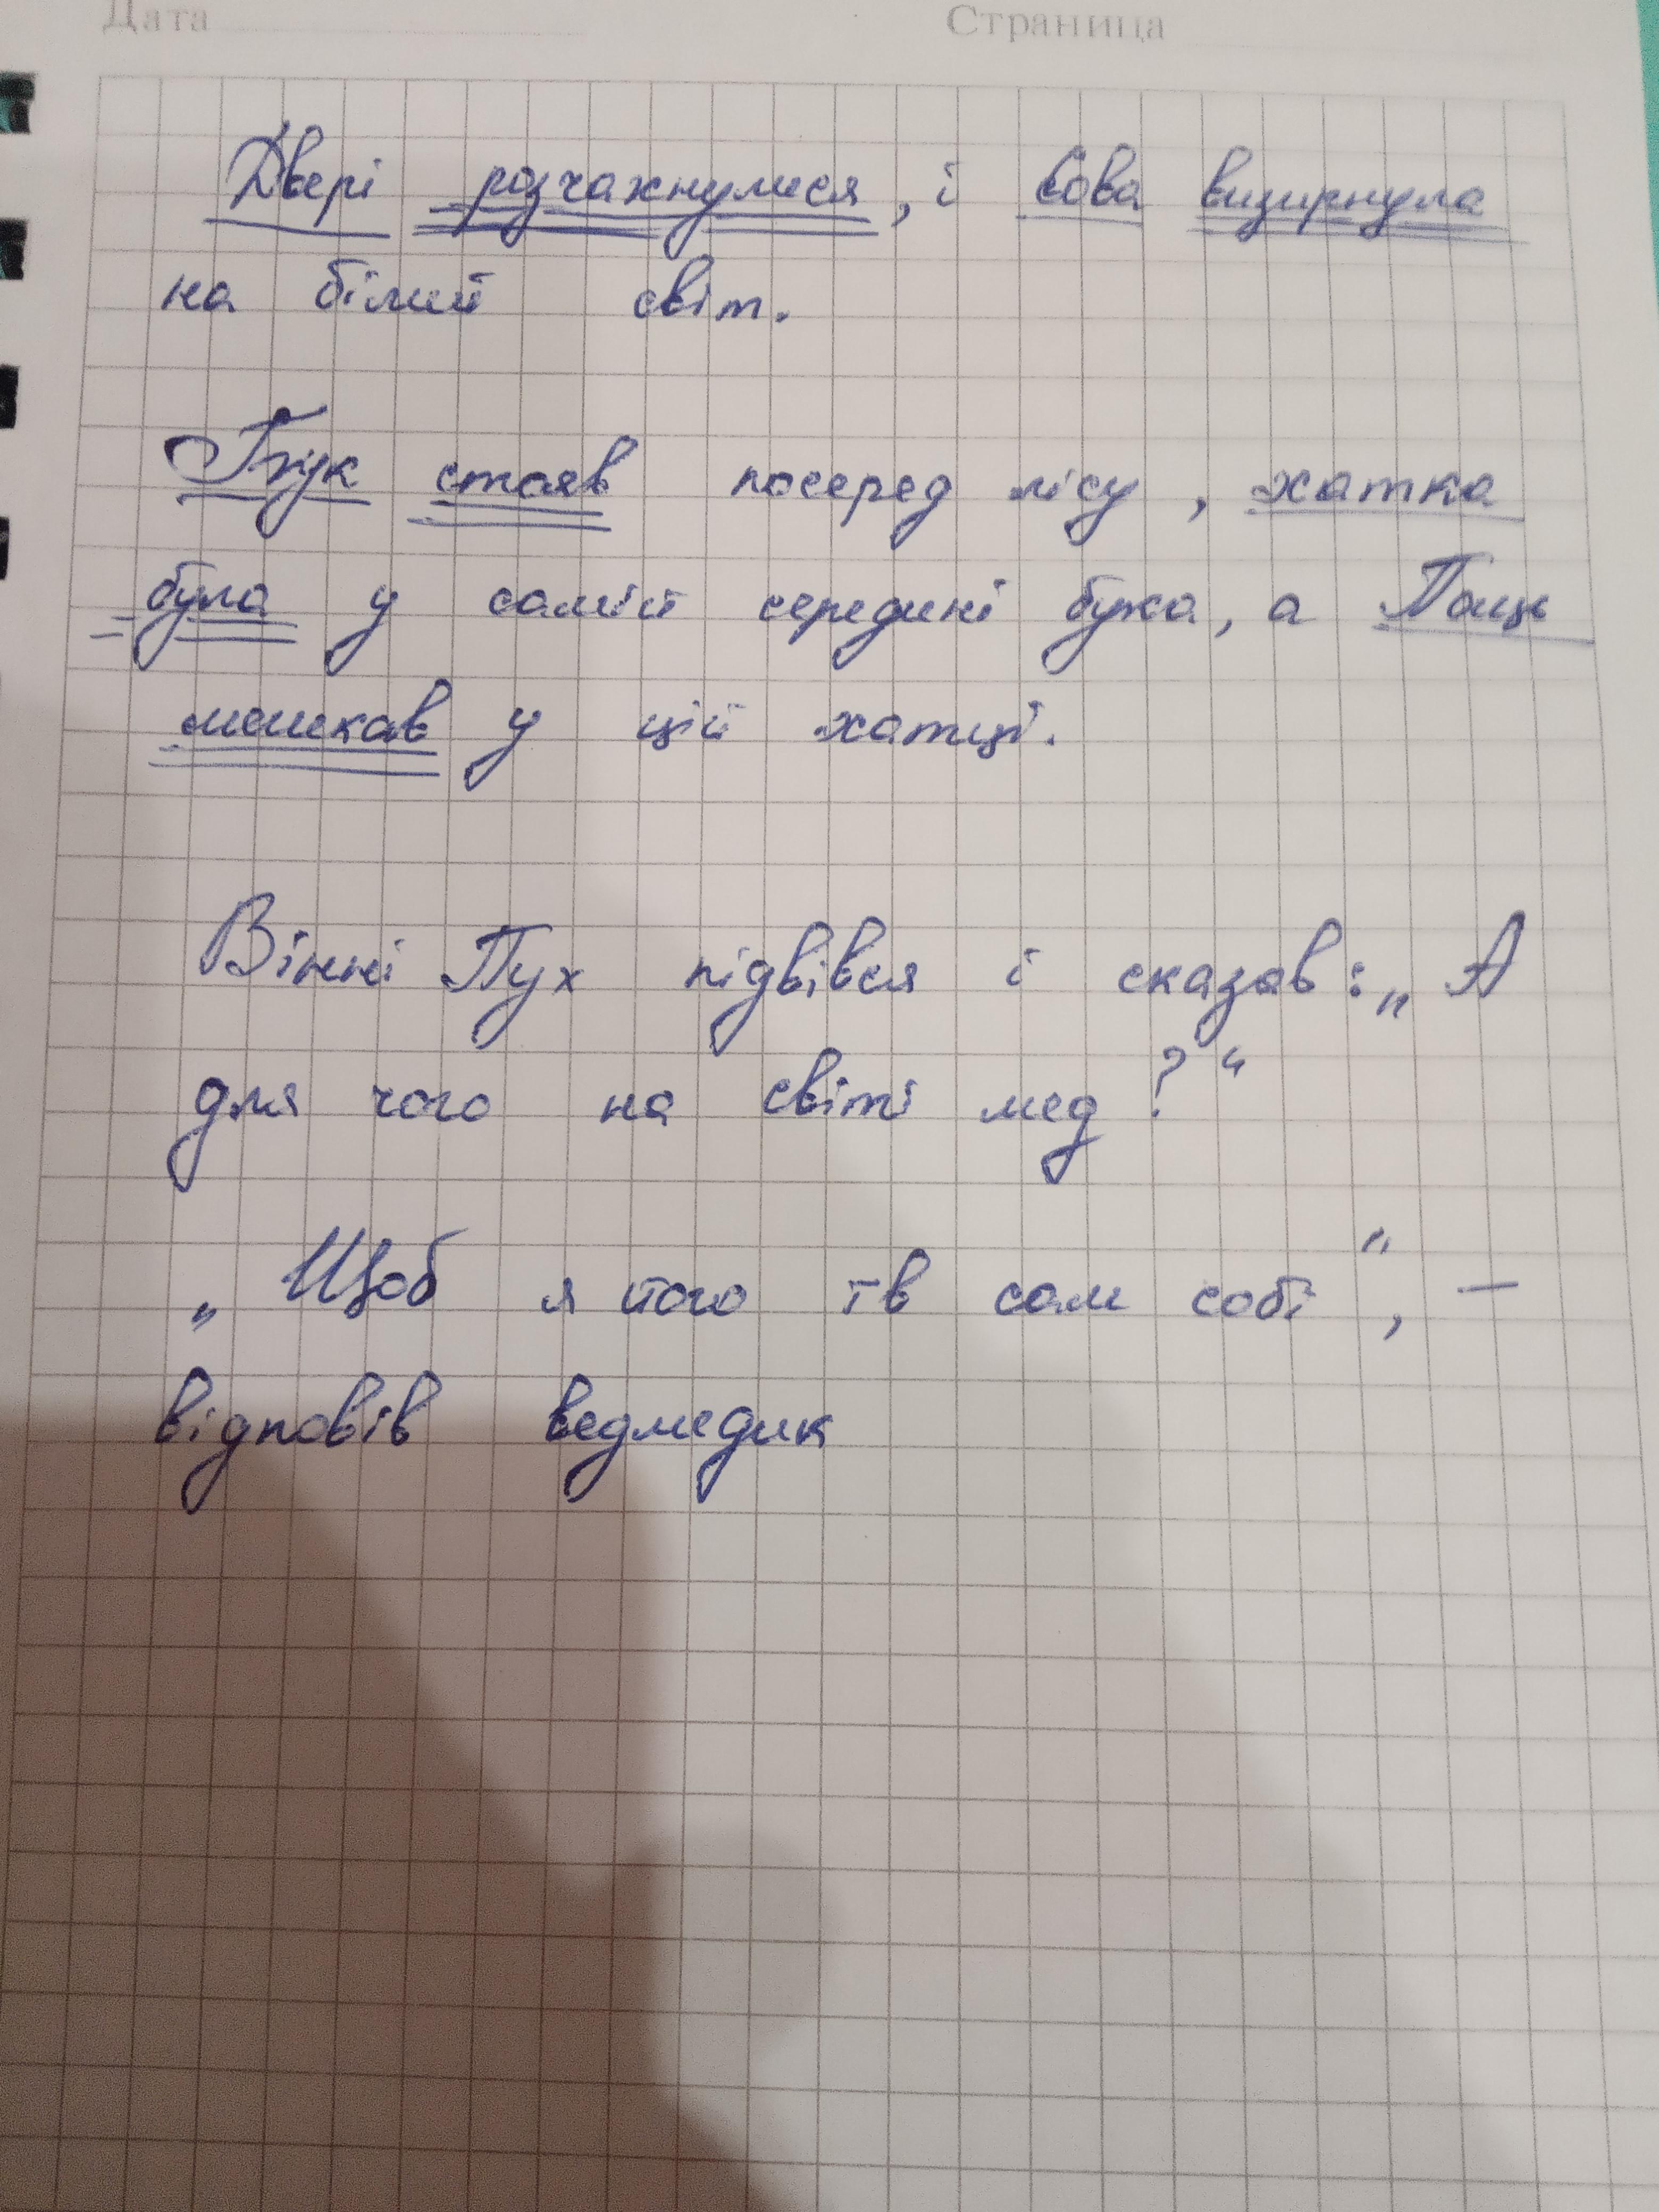 Дата Страница
Двері розчахнулися, і Сова визирнула
на білий світ.
Бук стояв посеред лісу, хатка
була у самій середині бука, а Паць
мешкав у цій хатці.
Вінні Пух підвівся і сказав: „А
для чого на світі мед?“
„Щоб я його їв сам собі”, —
відповів ведмедик